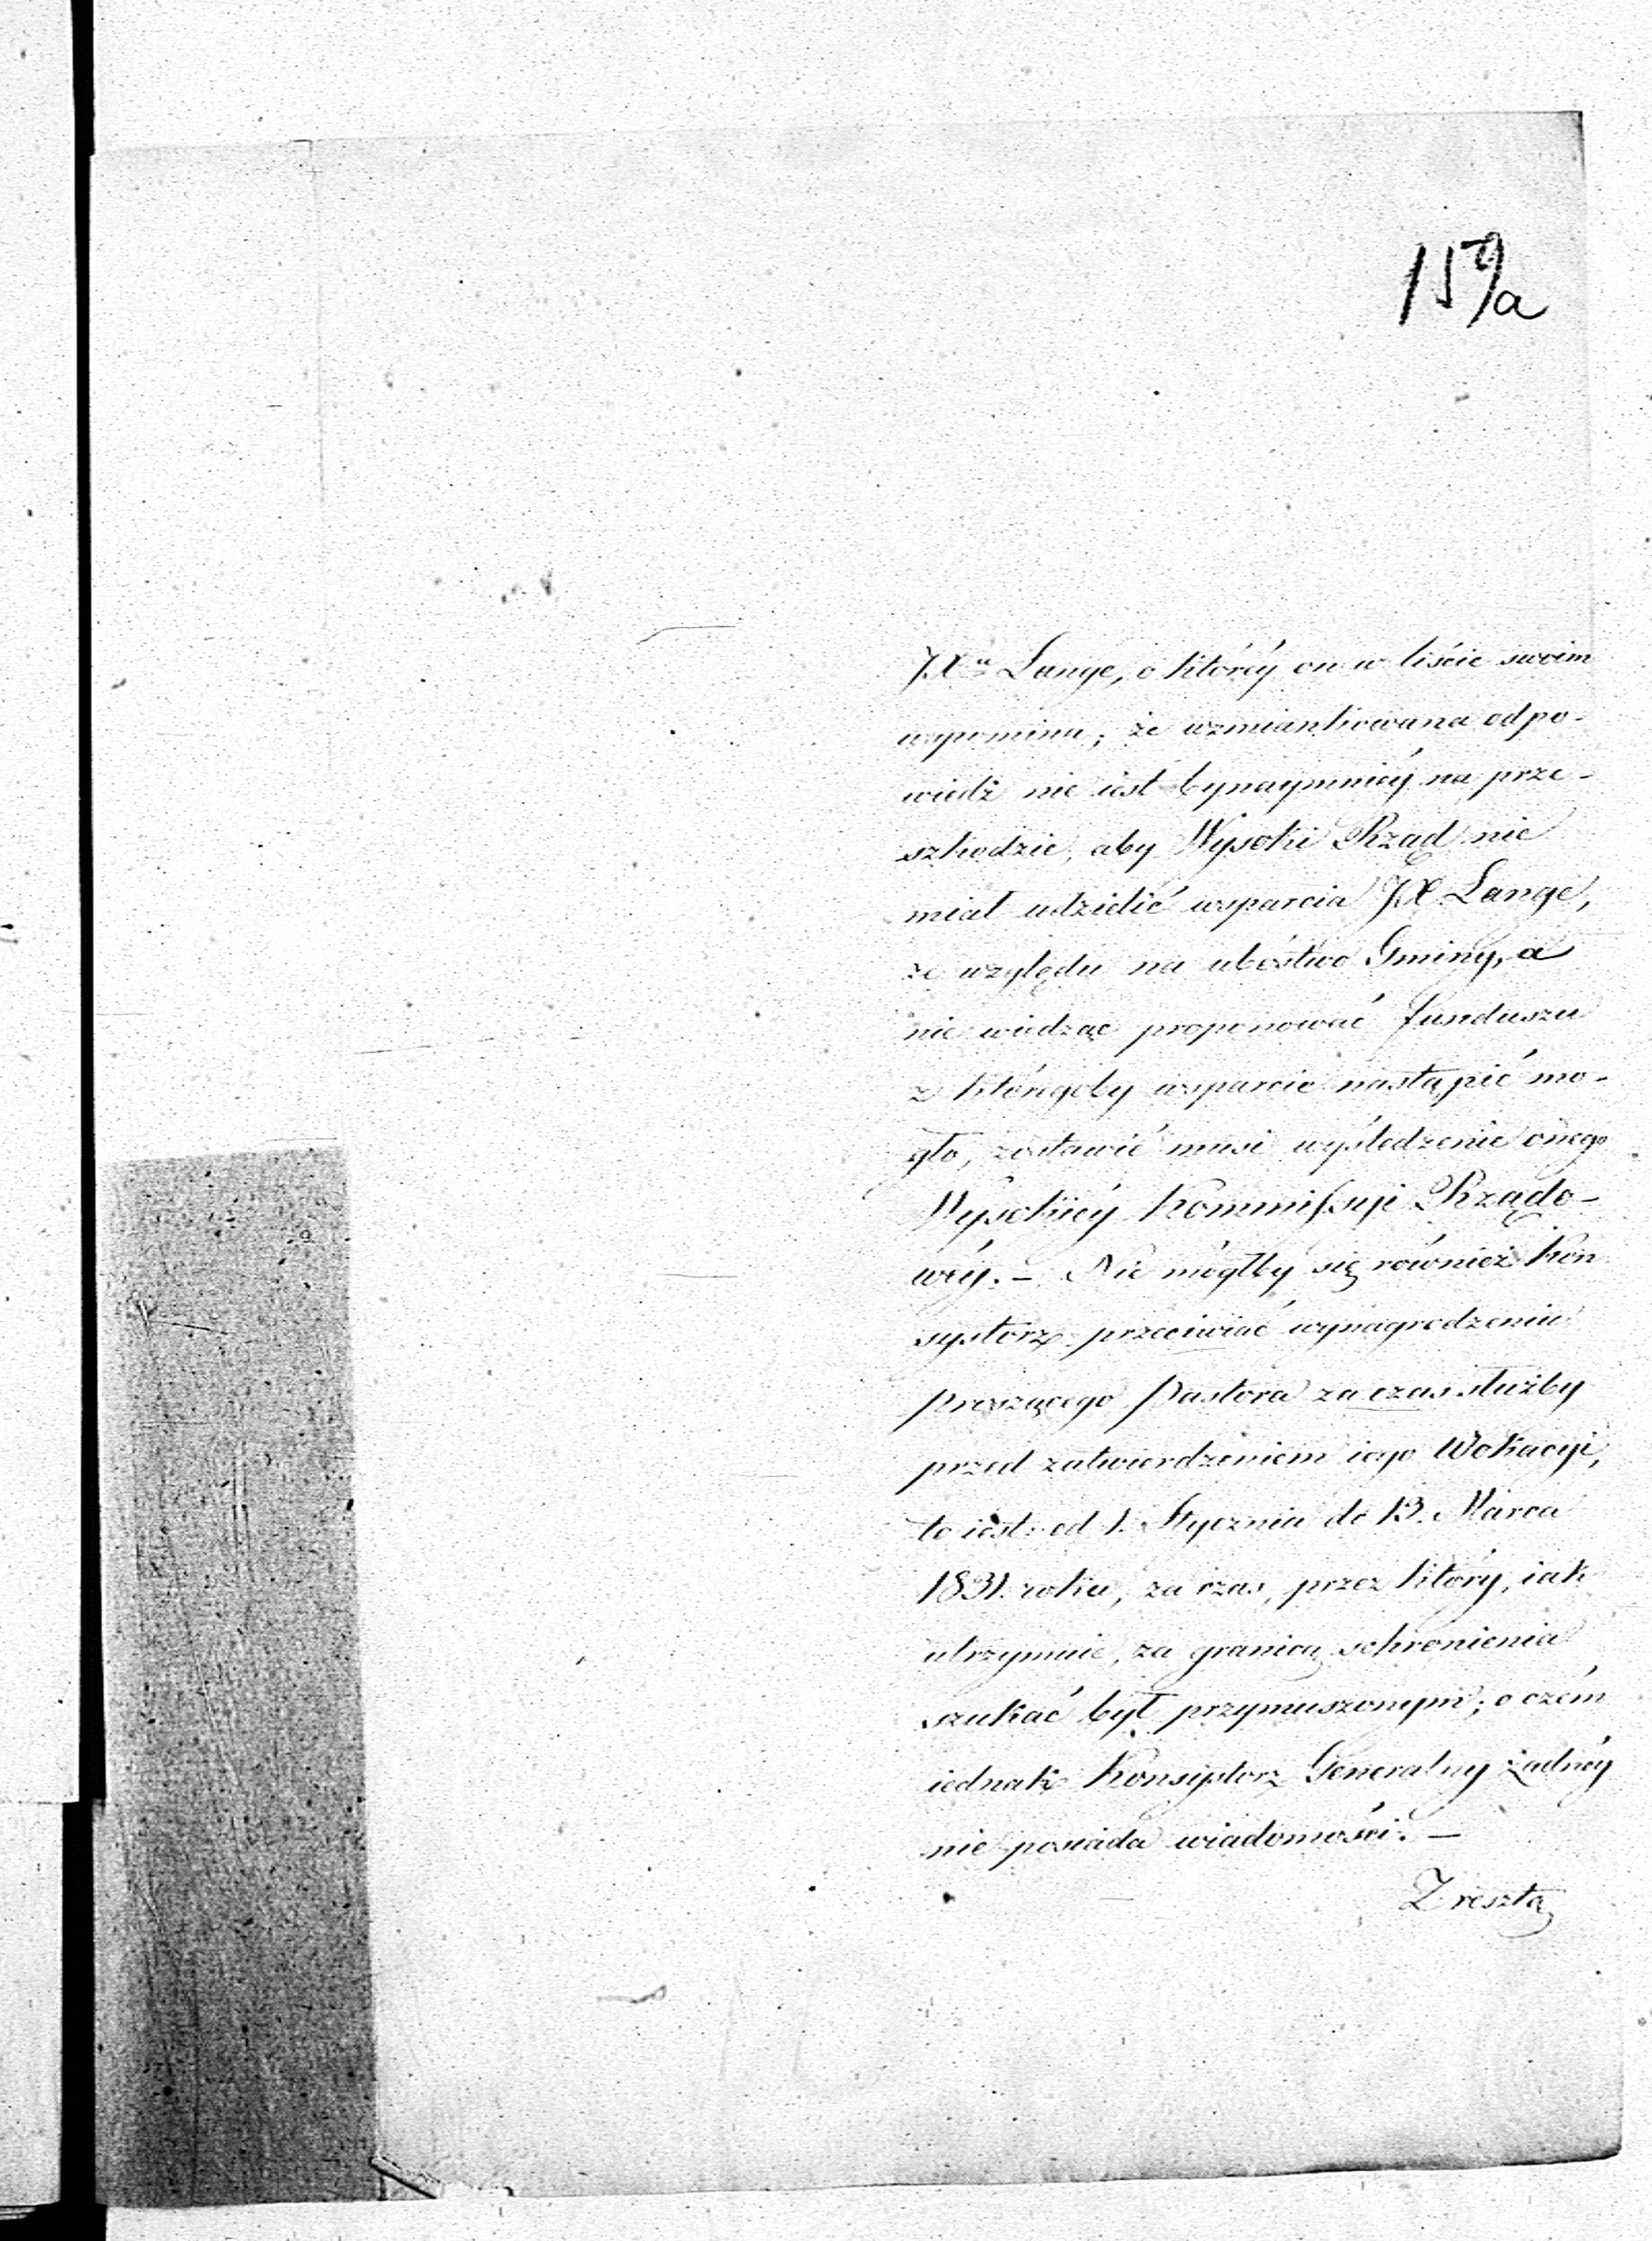 159/a
JXa Lange, o któréy on w liście swoim
wspomina; że wzmiankowana odpo-
wiedź nie iest bynaymniéy na prze-
szkodzie, aby Wysoki Rząd nie
miał udzielić wsparcia JX Lange,
ze względu na ubóstwo Gminy, a
nie wiedząc proponować funduszu
z któregoby wsparcie nastąpić mo-
gło, zostawić musi wyśledzenie onego
Wysokiéy Kommissyi Rządo-
wéy. – Nie mógłby się również Kon
systorz przeciwiać wynagrodzeniu
proszącego Pastora za czas służby
przed zatwierdzeniem iego Wokacyi,
to iest: od 1. Stycznia do 13. Marca
1831. roku, za czas, przez który, iak
utrzymuie, za granicą schronienia
szukać był przymuszonym; o czém
iednak Konsystorz Generalny żadnéy
nie posiada wiadomości. –
Z resztą